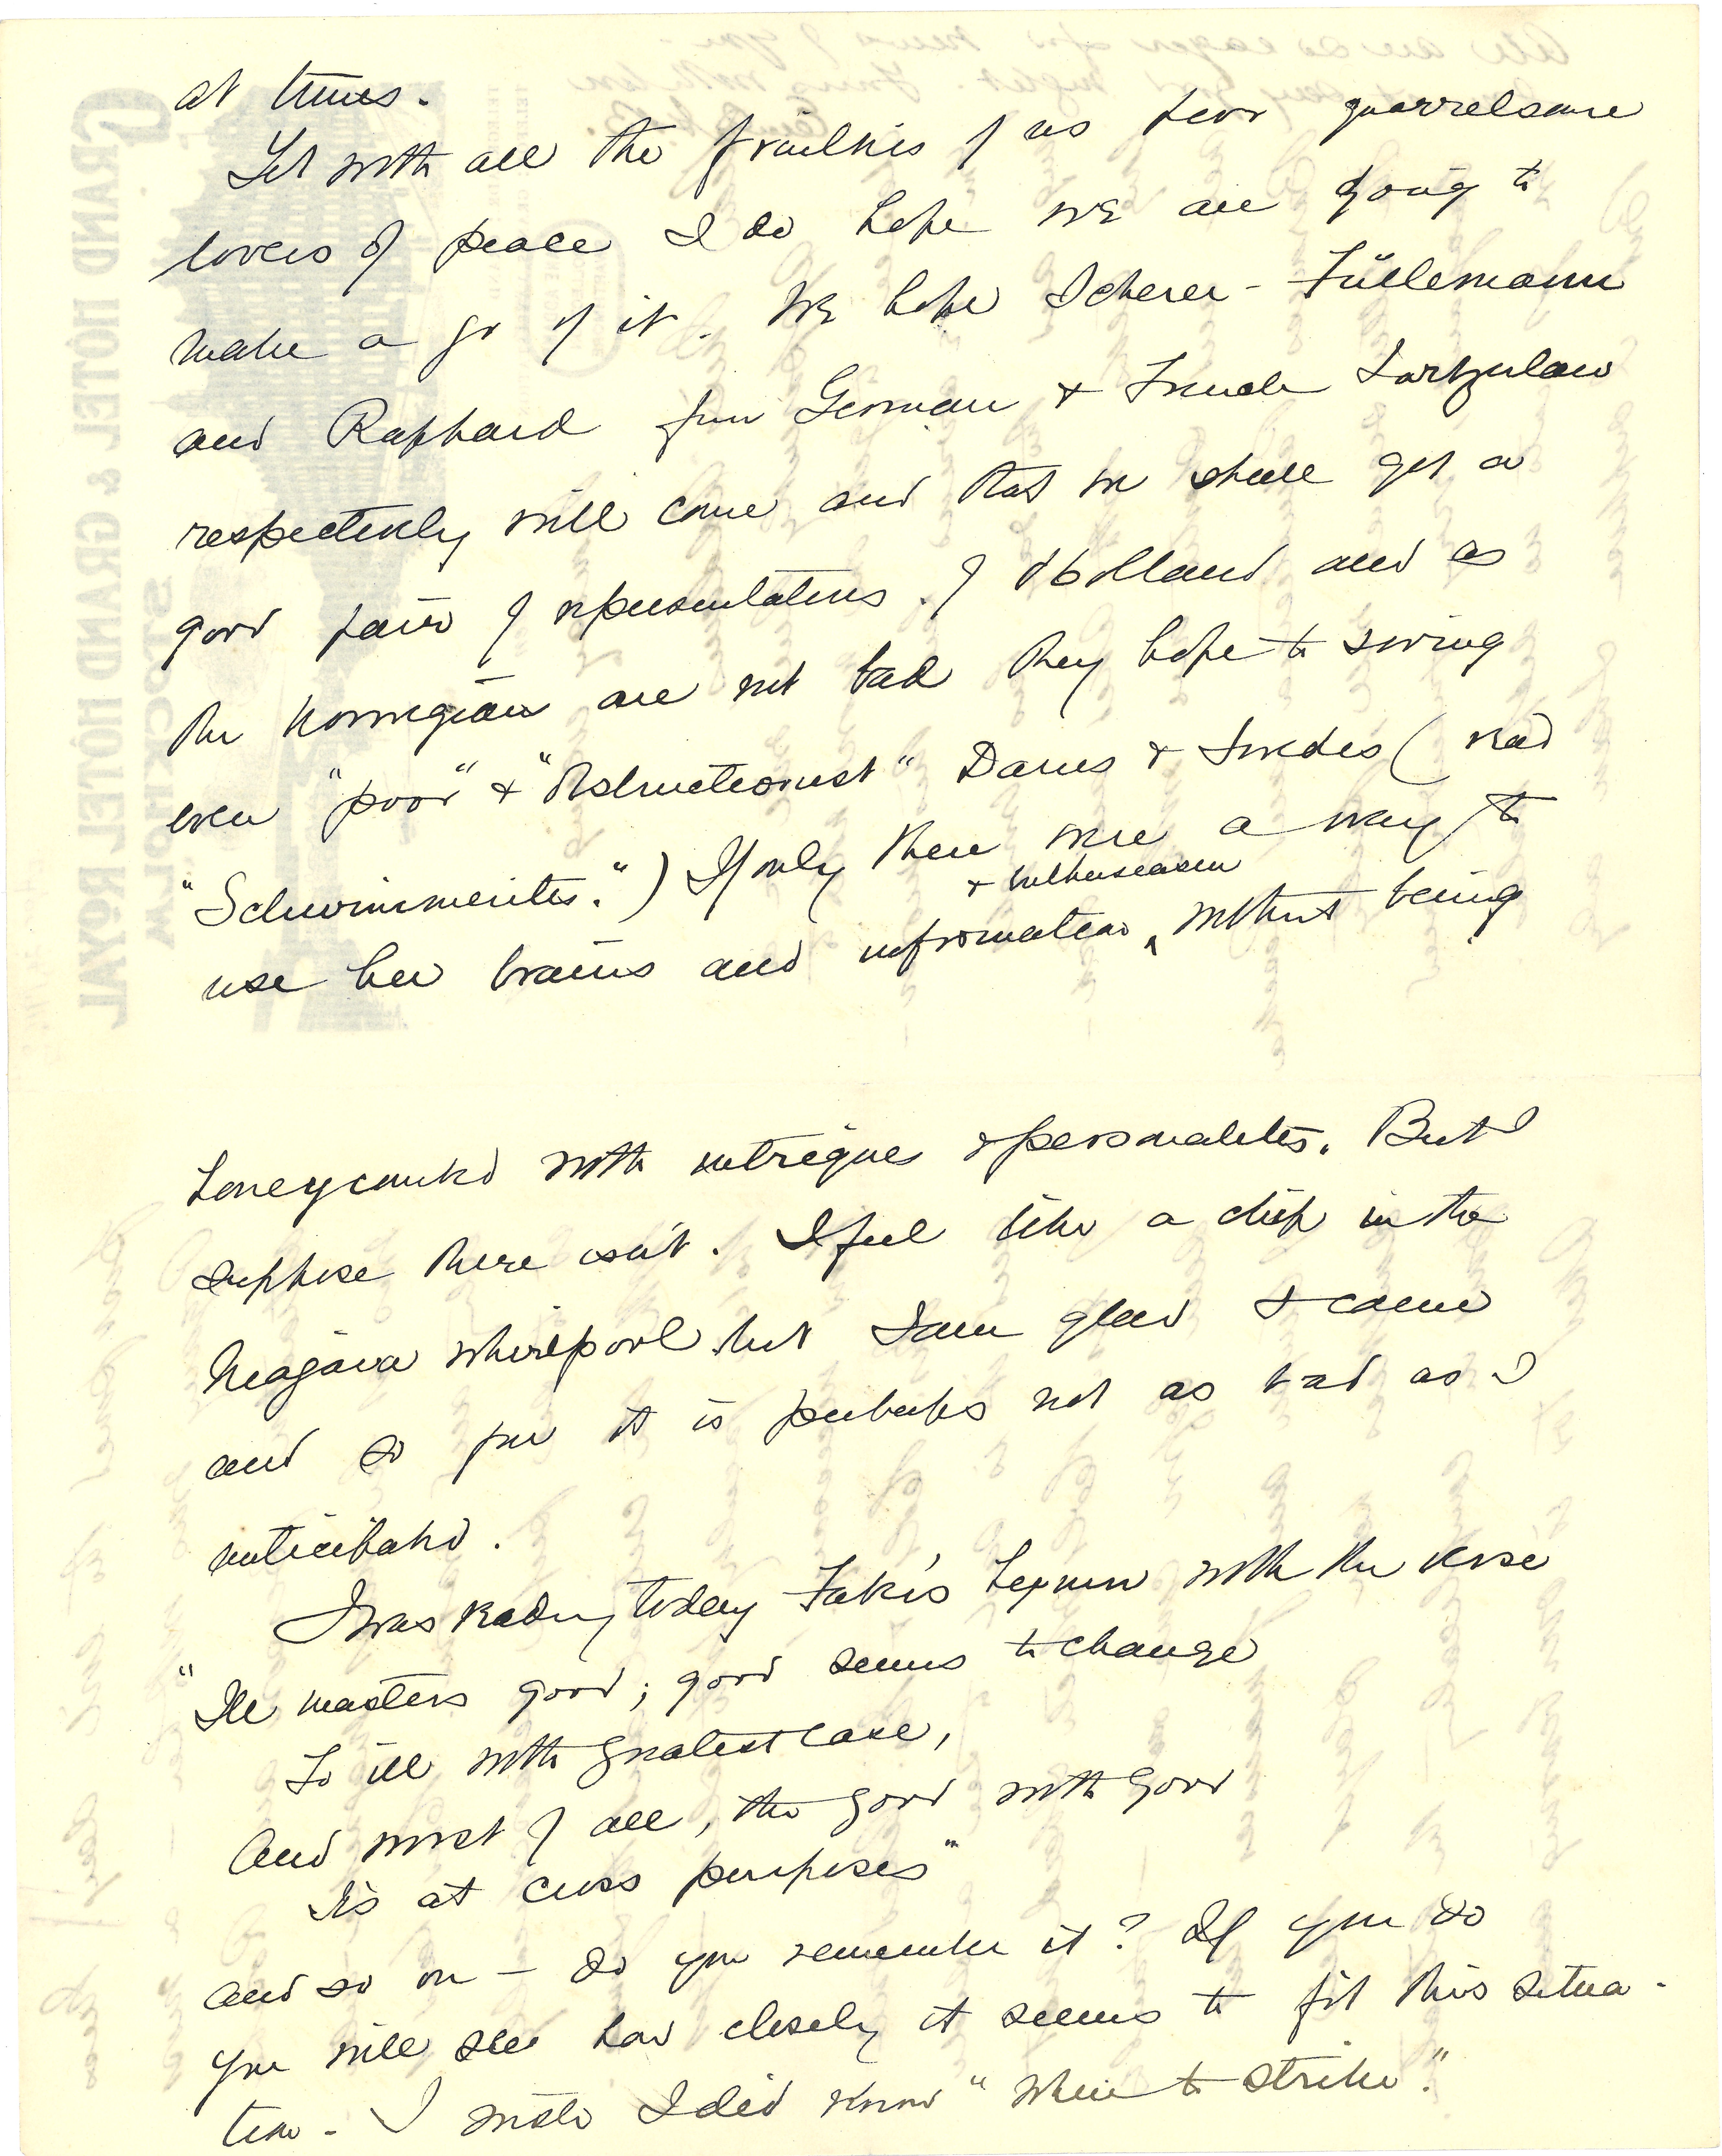 at times.
Yet with all the frailties of us poor quarrelsome
lovers of peace I do hope we are going to
make a go of it. We hope Scherer-Füllemann
and Raphard from German & French Switzerland
respectively will come and that we shall get a
good pair of representatives of Holland and as
the Norwegians are not bad they hope to swing
even "poor" & "Obstructionist" Danes & Swedes (read
"Schwimmerites.") If only there were a way to
use her brains and information & enthusiasm without being
honeycombed with intrigues & personalities. But I
suppose there isn't. I feel like a chip in the
Niagara whirlpool but I am glad I came
and so far it is perhaps not as bad as I
anticipated.
I was reading today Faber's hymn with the verse
"Ill masters good; good seems to change
To ill with greatest ease,
And worst of all, the good with good
Is at cross purposes"
and so on — do you remember it? If you do
you will see how closely it seems to fit this situa-
tion. I wish I did know "where to strike."
GRAND HÔTEL & GRAND HÔTEL ROYAL
STOCKHOLM